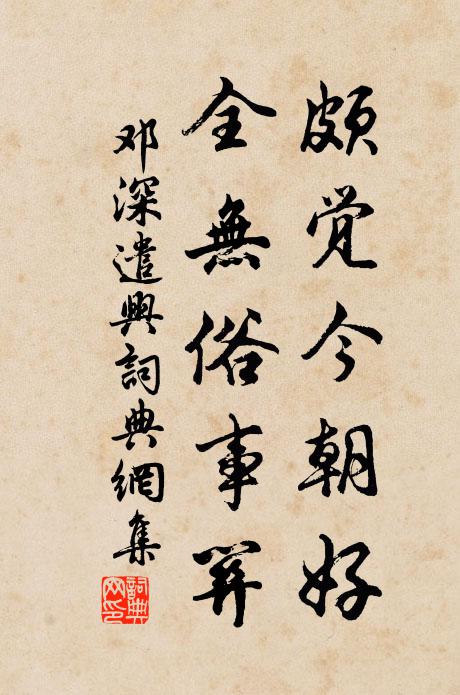 頗觉今朝好
全無俗事并
邓深遣興詞典網集
詞典
网印